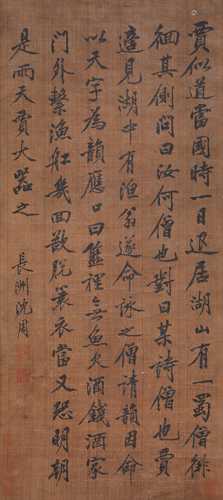 賈似道當國時一日退居湖山有一蜀僧徘
徊其側問曰汝何僧也對曰某詩僧也賈
適見湖中有漁翁遂命詠之僧請韻因命
以天字為韻應口曰籃裡無魚欠酒錢酒家
門外繫漁舡幾回欲脫蓑衣當又恐明朝
是雨天賈大器之
長洲沈周